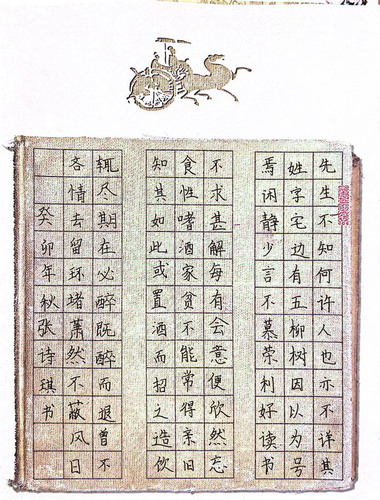 先生不知何许人也亦不详其
姓字宅边有五柳树因以为号
焉闲静少言不慕荣利好读书
不求甚解每有会意便欣然忘
食性嗜酒家贫不能常得亲旧
知其如此或置酒而招之造饮
辄尽期在必醉既醉而退曾不
吝情去留环堵萧然不蔽风日
癸卯年秋张诗琪书